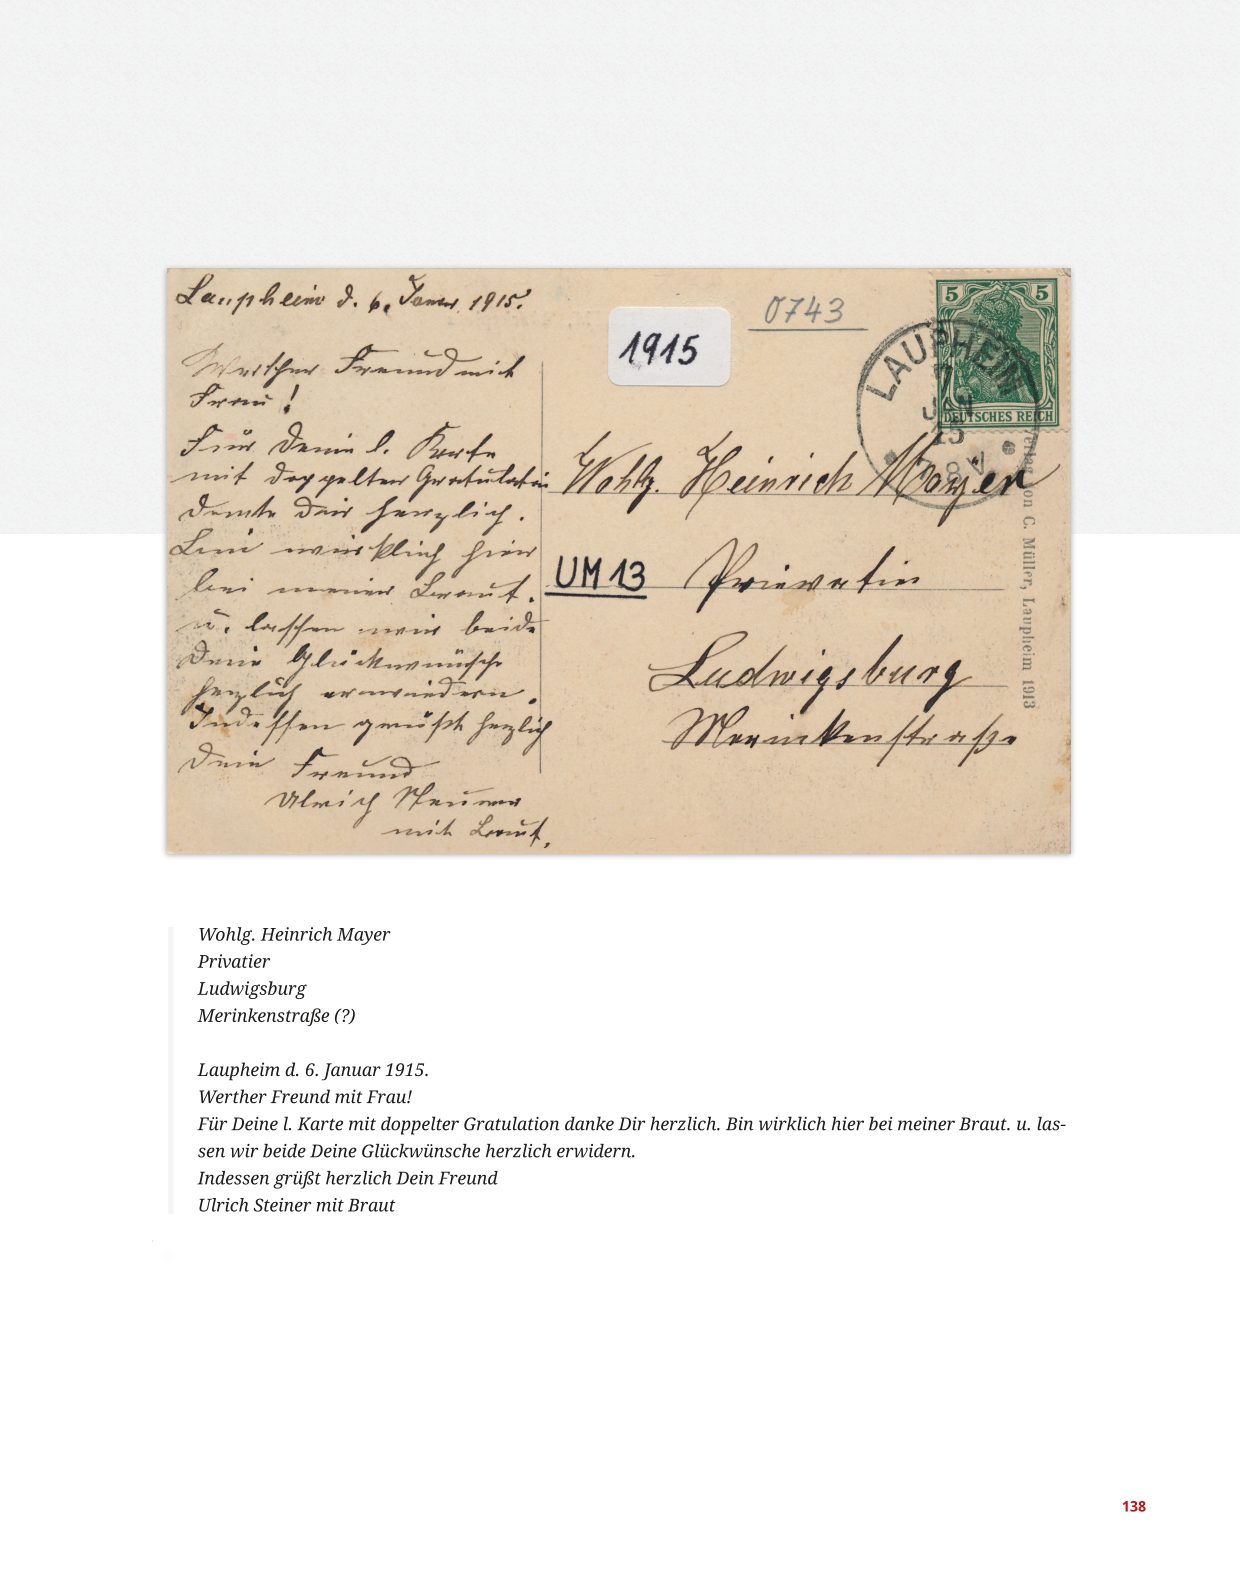 Laupheim d. 6. Januar 1915.
Werther Freund mit
Frau!
Für Deine l. Karte
mit doppelter Gratulation
danke Dir herzlich.
Bin wirklich hier
bei meiner Braut.
u. lassen wir beide
Deine Glückwünsche
herzlich erwiedern.
Indessen grüßt herzlich
Dein Freund
Ulrich Steiner
mit Braut.
0743
1915
5 5
DEUTSCHES REICH
LAUPHEIM
7
JAN
15
7-8 V.
Wohlg. Heinrich Mayer
UM 13
Privatier
Ludwigsburg
Merinkenstraße
Verlag von C. Müller, Laupheim 1913
Wohlg. Heinrich Mayer
Privatier
Ludwigsburg
Merinkenstraße (?)
Laupheim d. 6. Januar 1915.
Werther Freund mit Frau!
Für Deine l. Karte mit doppelter Gratulation danke Dir herzlich. Bin wirklich hier bei meiner Braut. u. las-
sen wir beide Deine Glückwünsche herzlich erwidern.
Indessen grüßt herzlich Dein Freund
Ulrich Steiner mit Braut
138